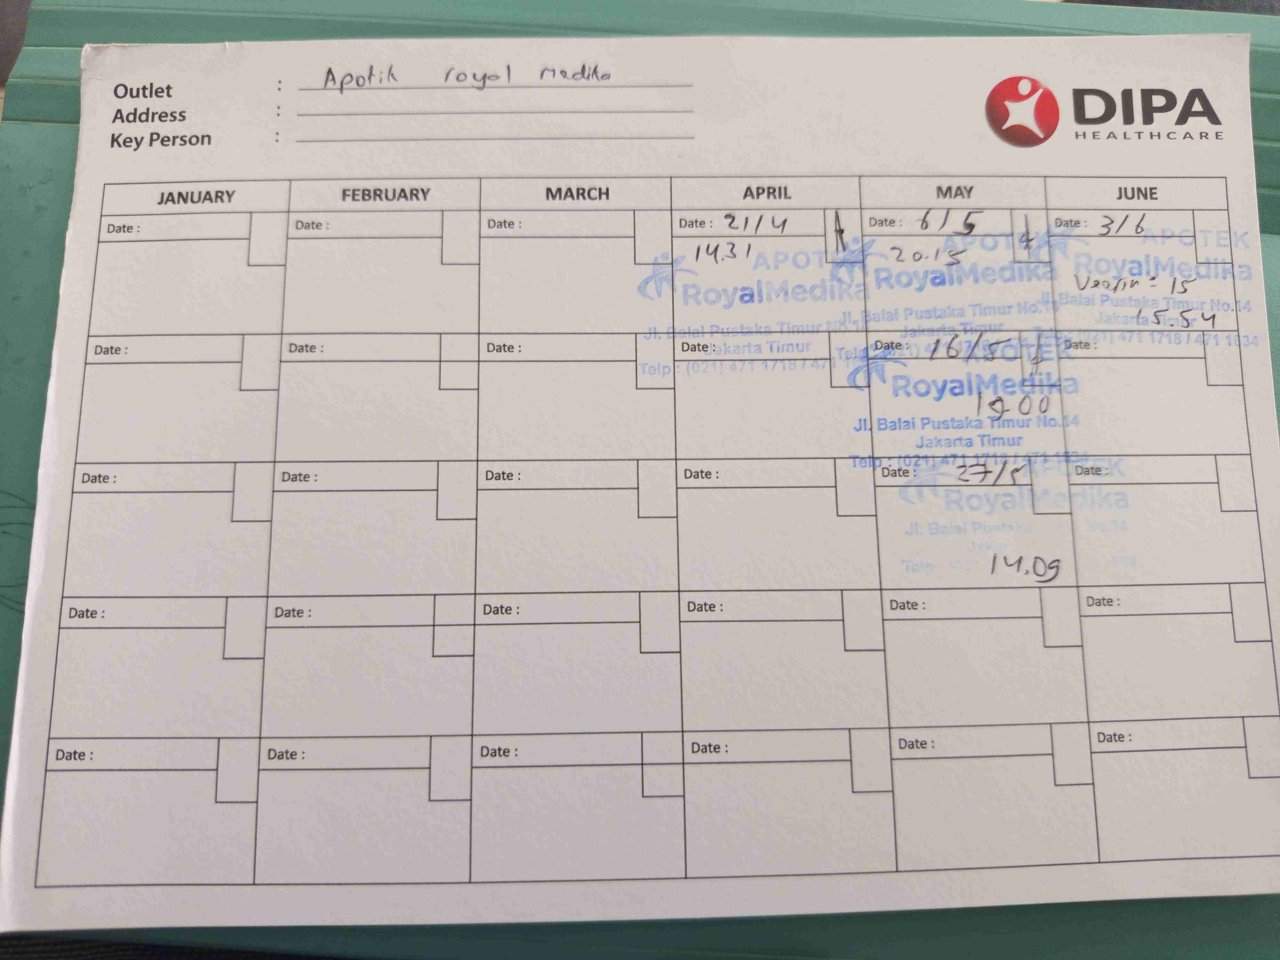 Outlet : Apotik royal Medika
Address :
Key Person :
DIPA
HEALTHCARE
JANUARY FEBRUARY MARCH APRIL MAY JUNE
Date : Date : Date : Date : 21/4 Date : 6/5 Date : 3/6
14.31 20.15
APOTEK
RoyalMedika
Jl. Balai Pustaka Timur No.14
Jakarta Timur
Telp : (021) 471 1718 / 471
APOTEK
RoyalMedika
Jl. Balai Pustaka Timur No.14
Jakarta Timur
APOTEK
RoyalMedika
= 15
Jl. Balai Pustaka Timur No.14
Jakarta Timur
15.54
(021) 471 1718 / 471 1034
Date : Date : Date : Date : Date : 16/5 Date :
APOTEK
RoyalMedika
Jl. Balai Pustaka Timur No.14
Jakarta Timur
Telp : (021) 471 1718 / 471 1034
Date : Date : Date : Date : Date : 27/5 Date :
APOTEK
RoyalMedika
Jl. Balai Pustaka No.14
Telp
14.09
Date : Date : Date : Date : Date : Date :
Date : Date : Date : Date : Date : Date :